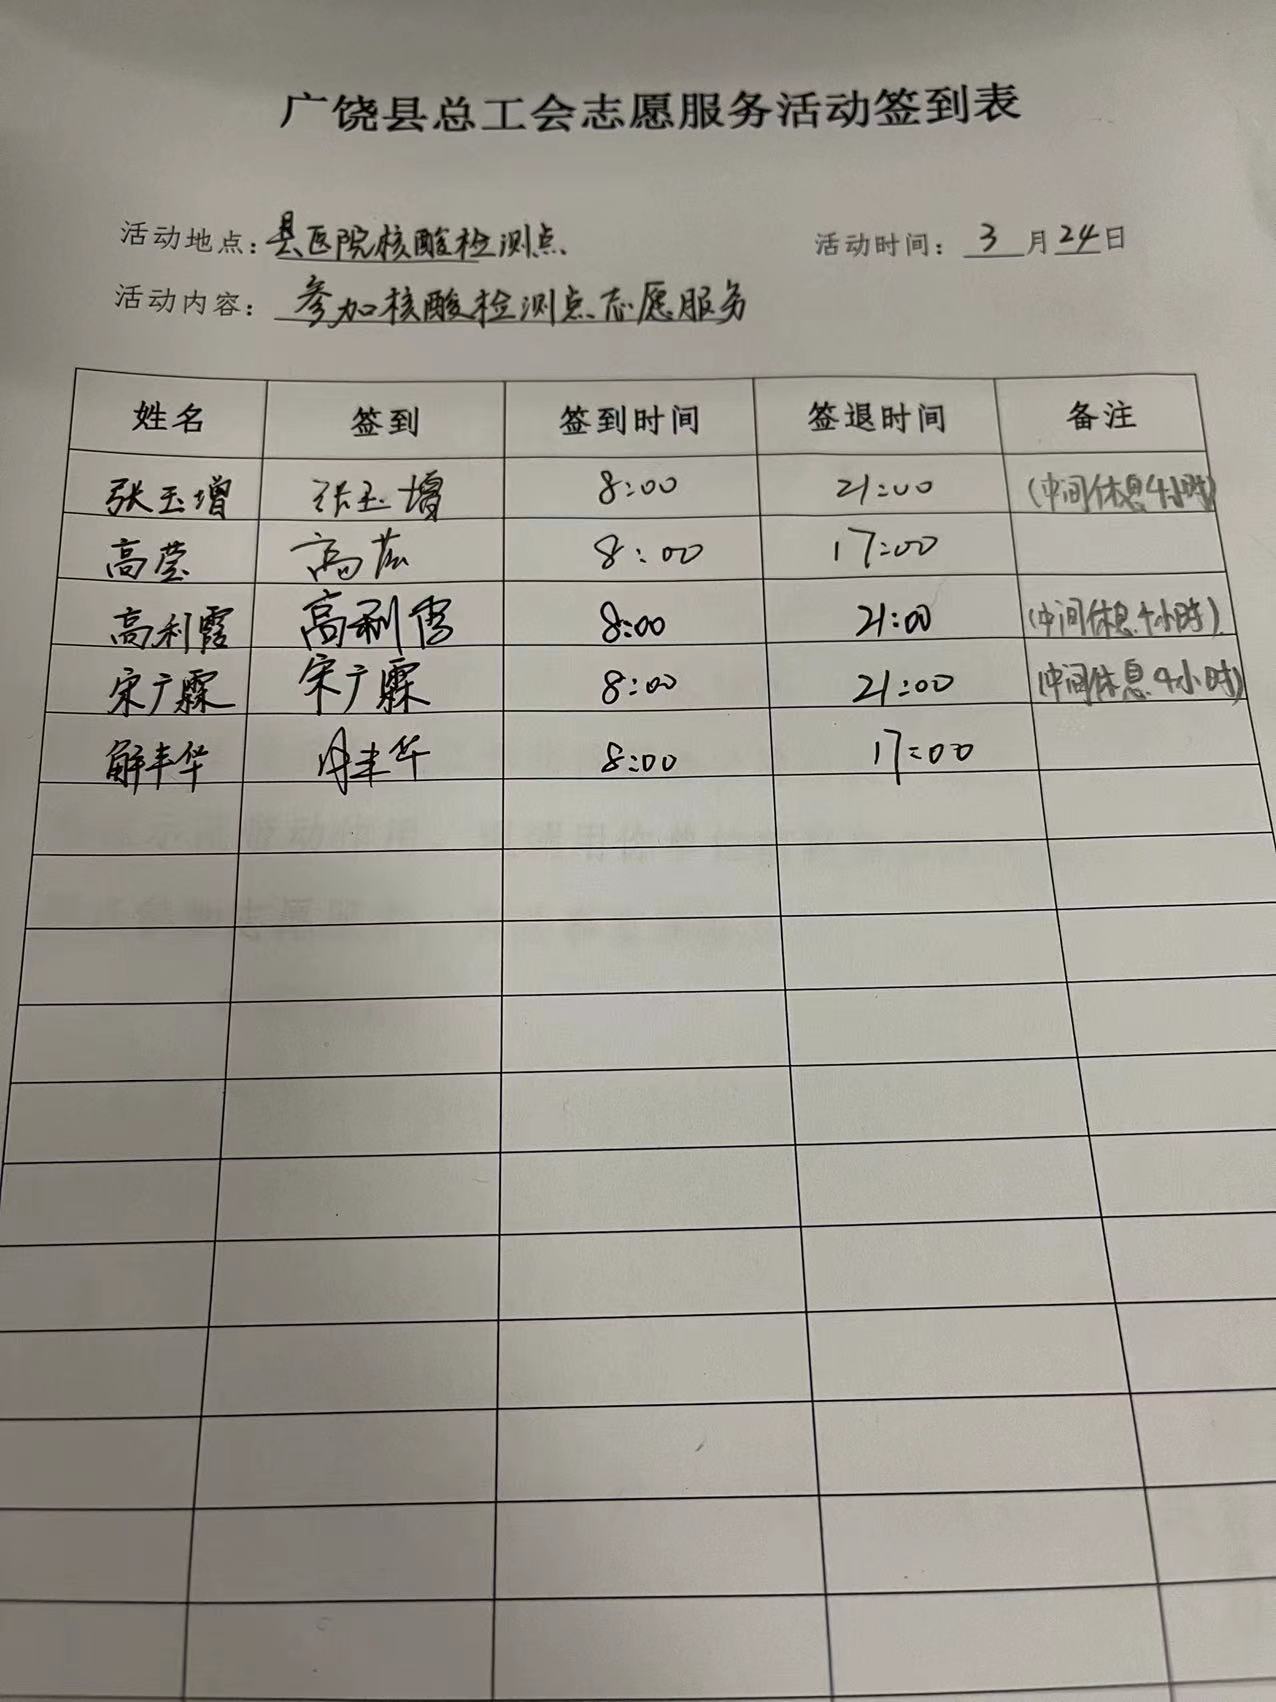 广饶县总工会志愿服务活动签到表
活动地点：县医院核酸检测点 活动时间：3月24日
活动内容：参加核酸检测点志愿服务
姓名 签到 签到时间 签退时间 备注
张玉增 张玉增 8:00 21:00 (中间休息4小时)
高莹 高莹 8:00 17:00
高利霞 高利霞 8:00 21:00 (中间休息4小时)
宋广霖 宋广霖 8:00 21:00 (中间休息4小时)
解丰华 解丰华 8:00 17:00